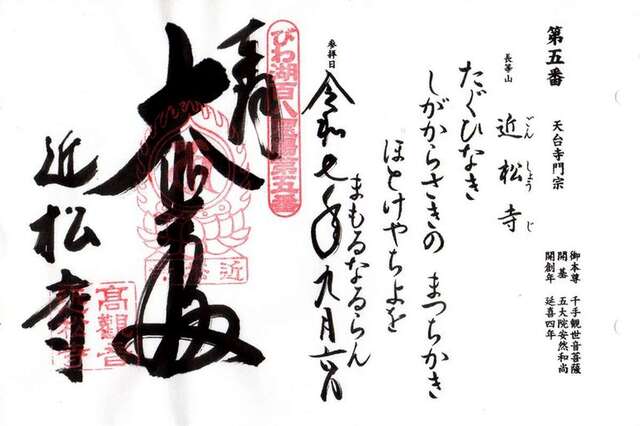 第五番 天台寺門宗
御本尊 千手観世音菩薩
開基 五大院安然和尚
開創年 延喜四年
長等山 近松寺
ごんしょうじ
たぐひなき
しがからさきの まつちかき
ほとけやちよを
まもるなるらん
参拝日 令和七年九月六日
びわ湖百八霊場第五番
奉拝
大悲殿
近松寺
高觀音